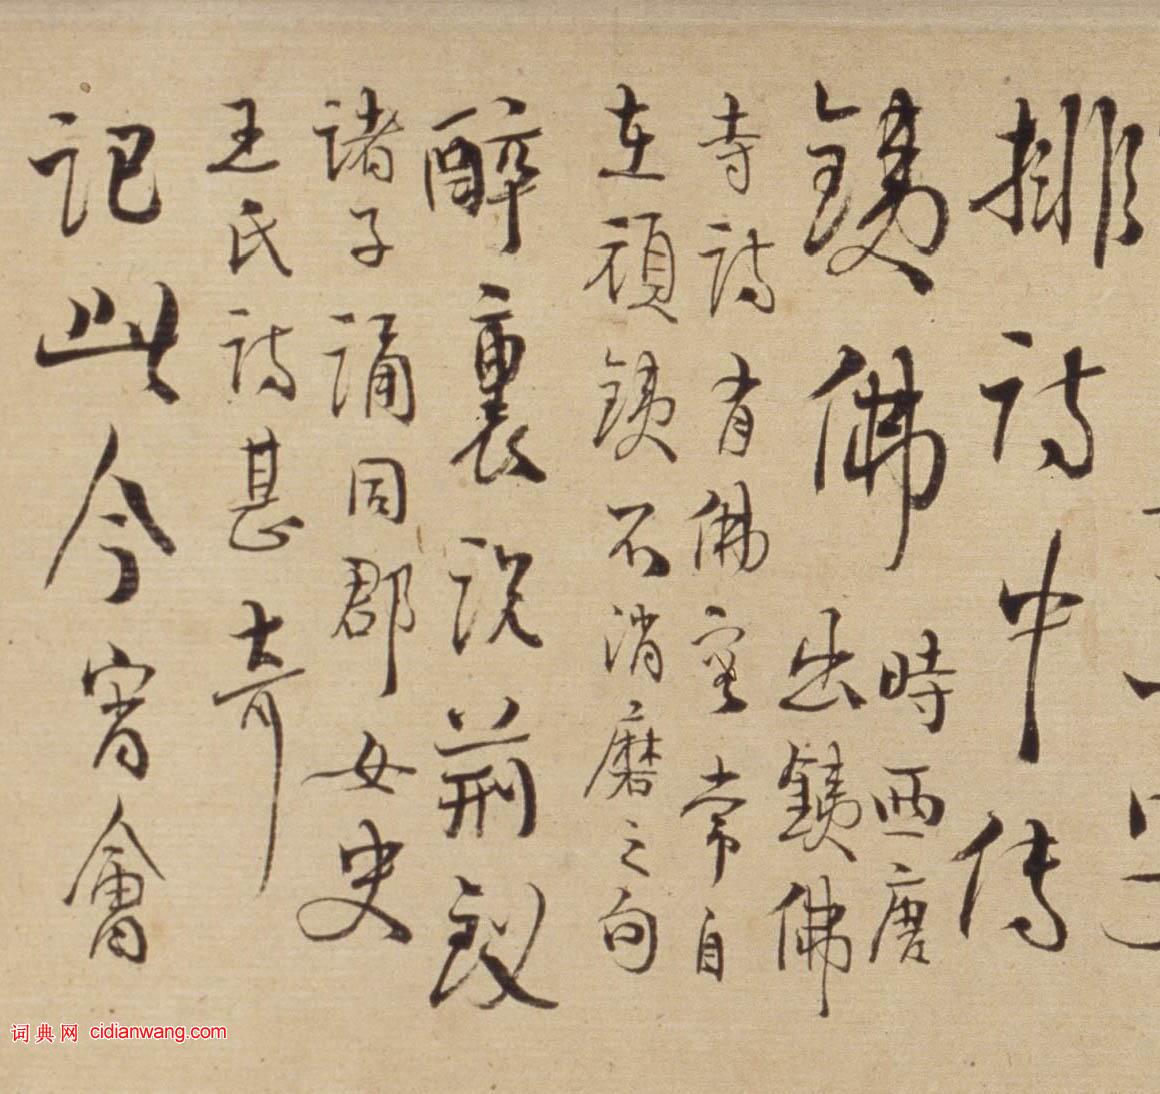 排詩中傳
鐵佛
時西唐
出鐵佛
寺詩有佛室常自
在頑鐵不消磨之句
醉裏説荊釵
諸子誦同郡女史
王氏詩甚奇
記此今宵會
词典网 cidianwang.com